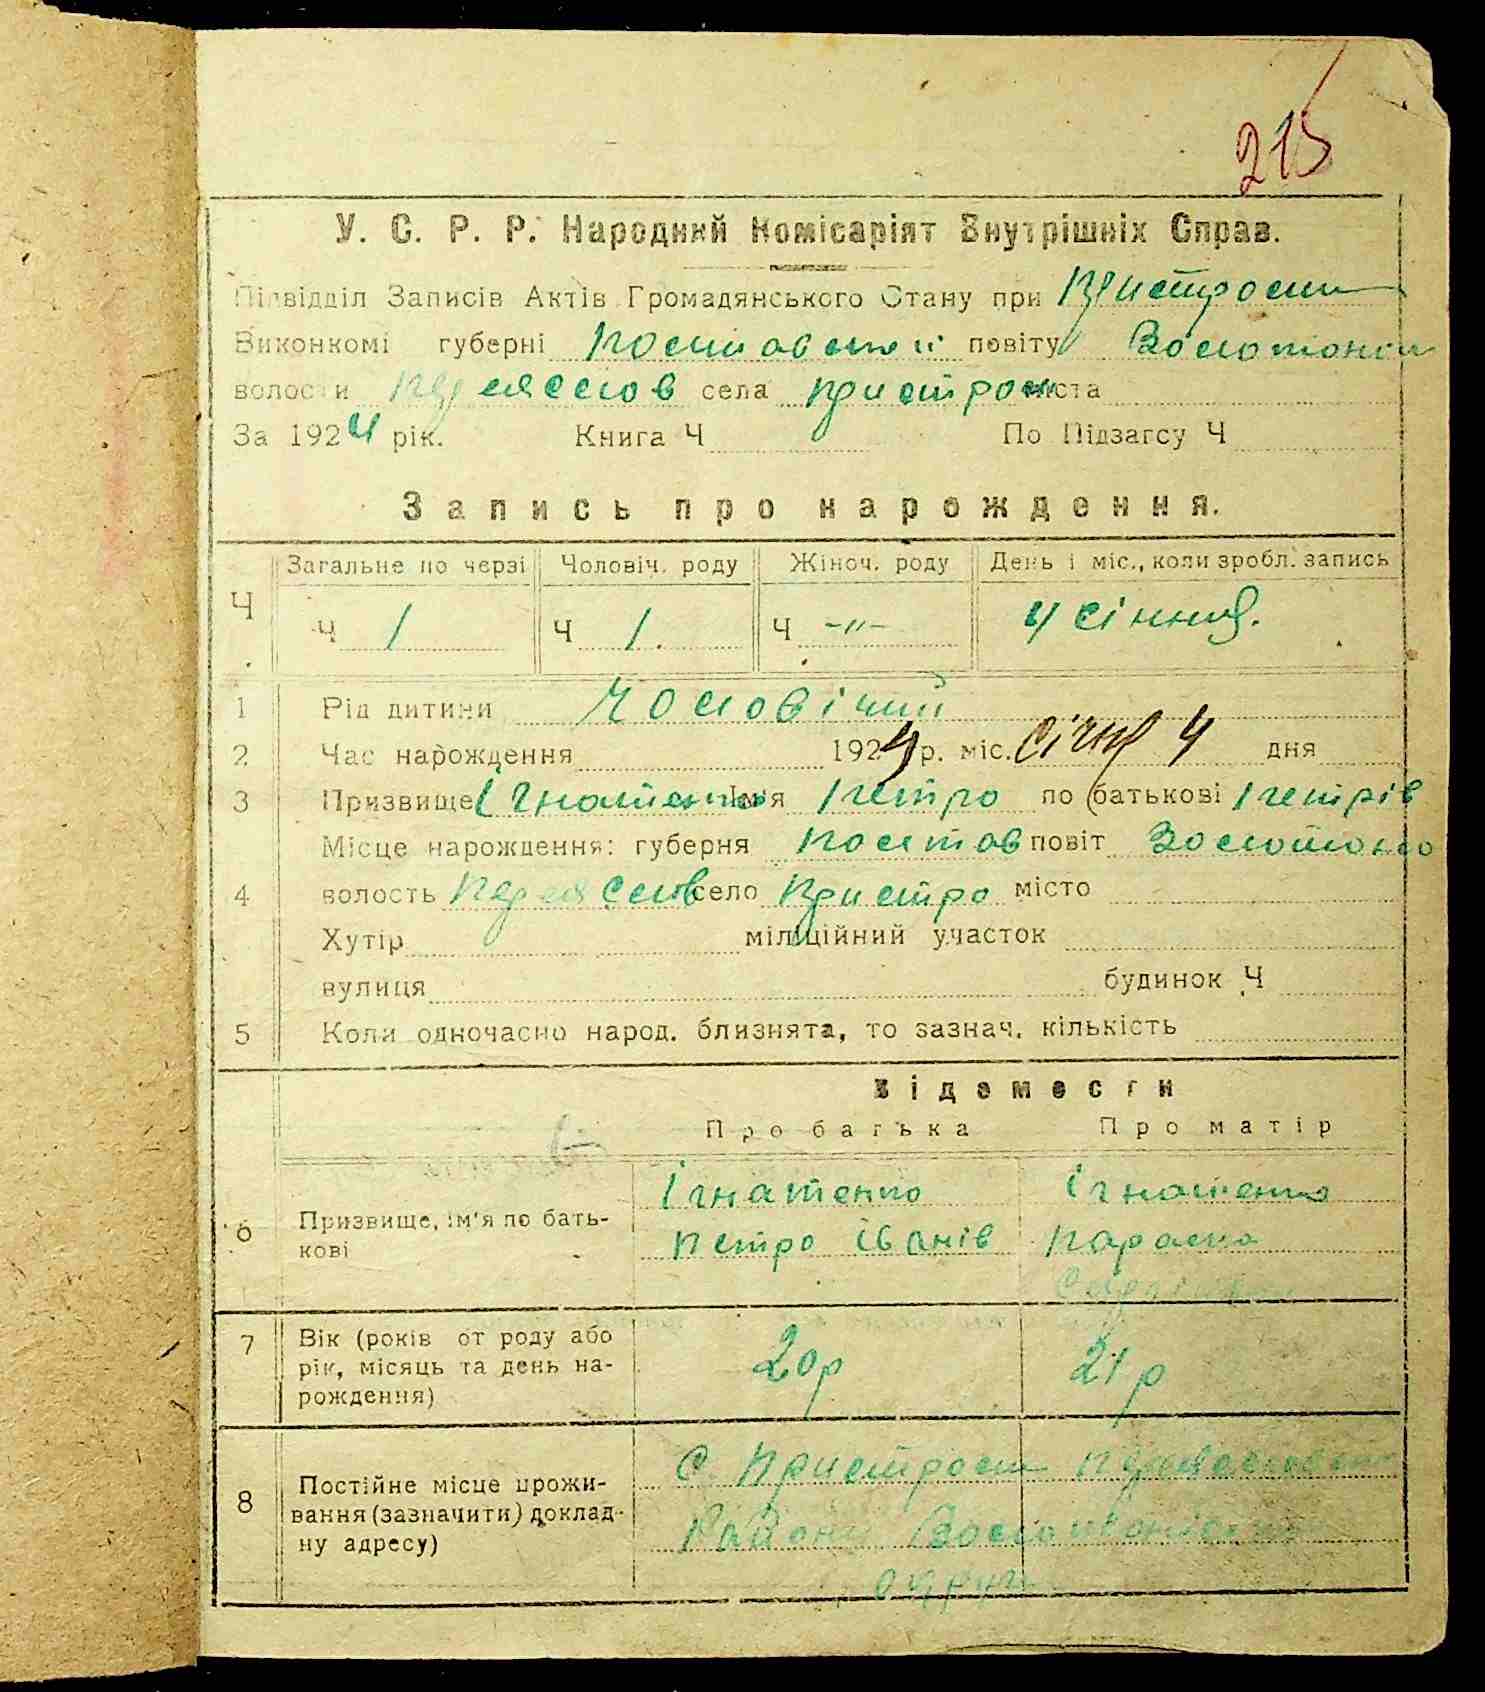 215
У. С. Р. Р. Народний Комісаріят Внутрішніх Справ.
Підвідділ Записів Актів Громадянського Стану при Пристром
Виконкомі губерні Полтавській повіту Золотоноськ
волости Переяслов села Пристром міста
За 1924 рік. Книга Ч По Підзагсу Ч
Запись про нарождення.
Загальне по черзі Чоловіч. роду Жіноч. роду День і міс., коли зробл. запись
Ч Ч 1 Ч 1. Ч -"- 4 січня.
1 Рід дитини Чоловічий
2 Час нарождення 1924 р. міс. січня 4 дня
3 Призвище Ігнатенко Ім'я Петро по батькові Петрів
Місце нарождення: губерня Полтав повіт Золотоно
4 волость Переяслов село Пристро місто
Хутір міліційний участок
вулиця будинок Ч
5 Коли одночасно народ. близнята, то зазнач. кількість
Відомости
Про батька Про матір
Ігнатенко Ігнатенко
6 Призвище, ім'я по бать- Петро Іванів Параска
кові
7 Вік (років от роду або 20р 21р
рік, місяць та день на-
рождення)
с. Пристром Переяславск
8 Постійне місце прожи-
вання (зазначити) доклад- Району Золотоніськ
ну адресу) округи